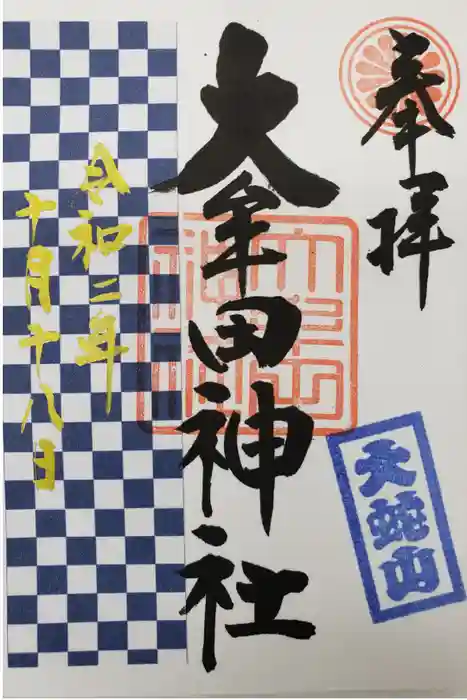 奉拝
大牟田神社
大蛇山
令和二年
十月十八日